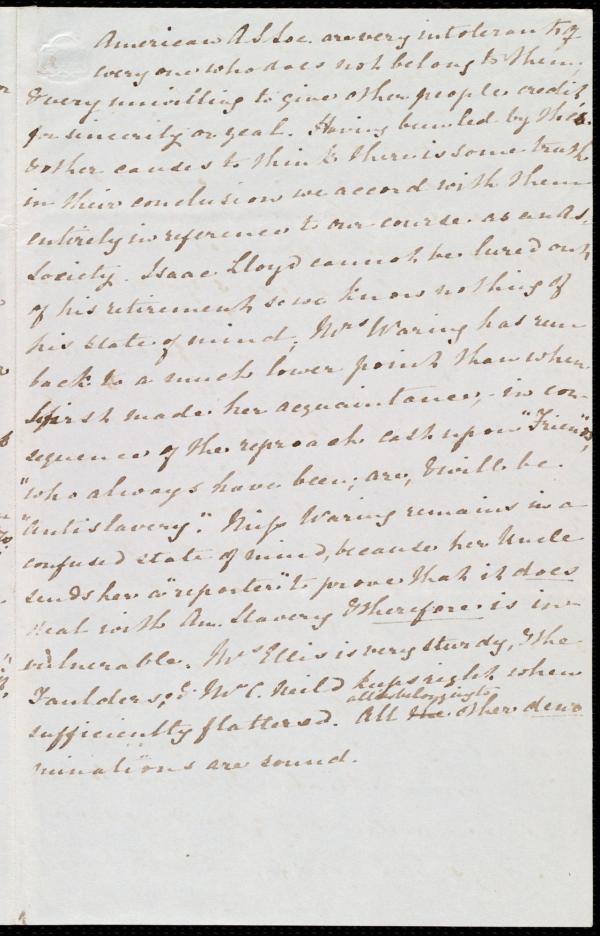 American A S Soc. are very intolerant of
every one who does not belong to them,
& very unwilling to give other people credit
for sincerity or zeal. Having been led by these
& other causes to think there is some truth
in their conclusion we accord with them
entirely in reference to our course as an As.
Society. Isaac Lloyd cannot be lured out
of his retirement so we know nothing of
his state of mind; Mrs Waring has run
back to a much lower point than when
I first made her acquaintance,- in con-
sequence of the reproach cast upon "Friends,"
"who always have been; are, & will be
"Antislavery." Miss Waring remains in a
confused state of mind, because her Uncle
sends her a "reporter" to prove that it does
deal with Am. Slavery & therefore is in-
vulnerable. Mrs Ellis is very sturdy, & the
Faulders; & Mr C. Neild keeps right when
sufficiently flattered. All the other deno
all belonging to
minations are sound.